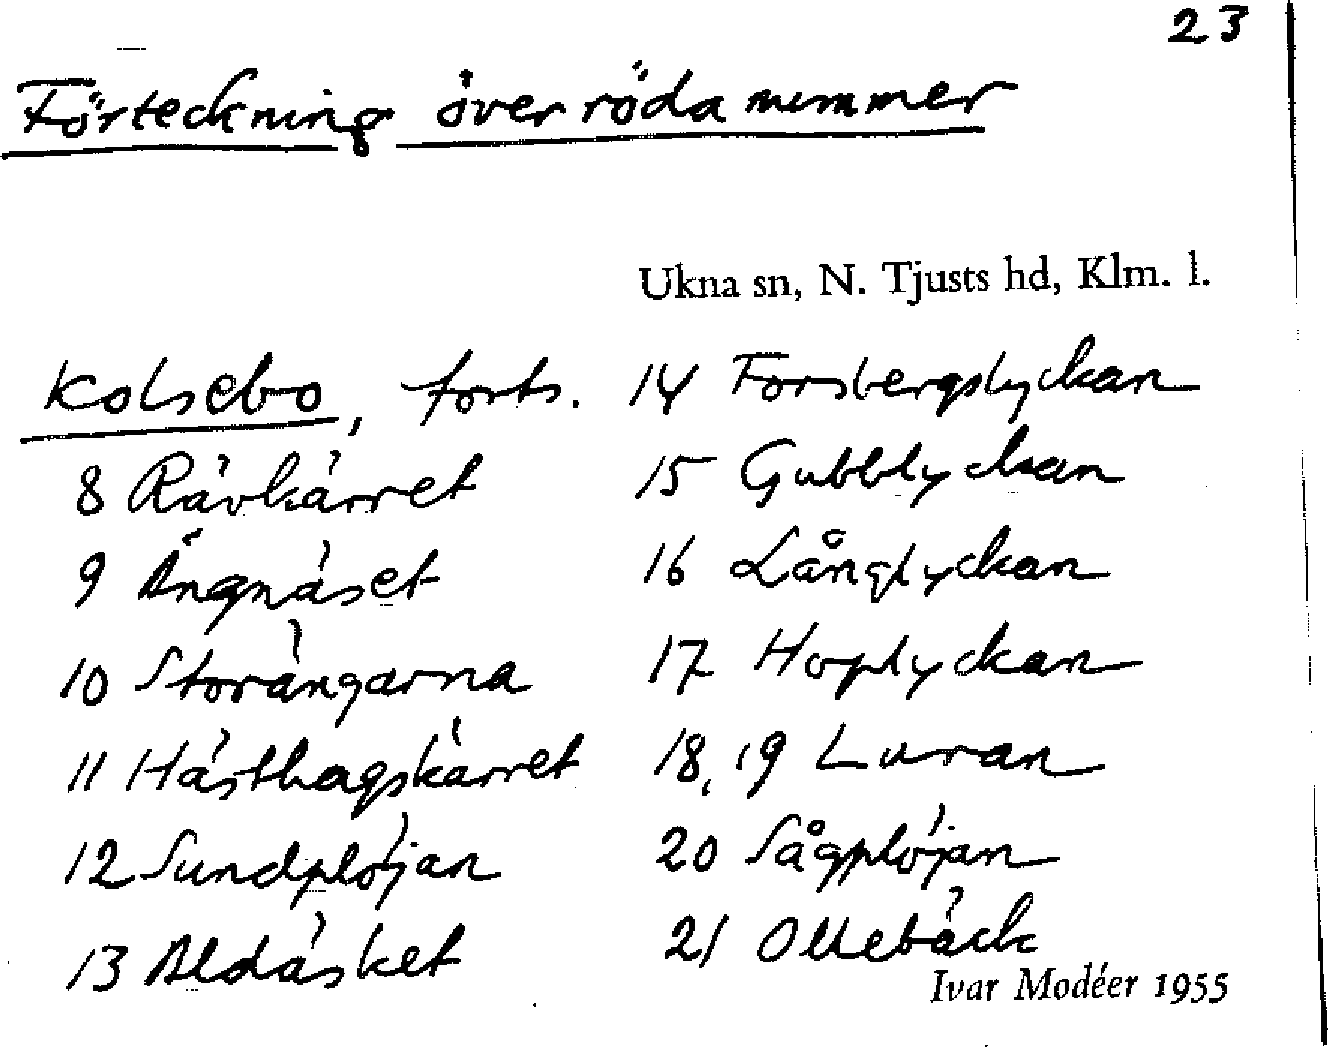 23
Förteckning över röda nummer
Ukna sn, N. Tjusts hd, Klm. l.
Kolsebo, forts.
8 Rävkärret
9 Ängnäset
10 Storängarna
11 Hästhagskärret
12 Sundplöjan
13 Aldäsket
14 Forsbergslyckan
15 Gubblyckan
16 Långlyckan
17 Hoplyckan
18, 19 Luran
20 Sågplöjan
21 Ollebäck
Ivar Modéer 1955